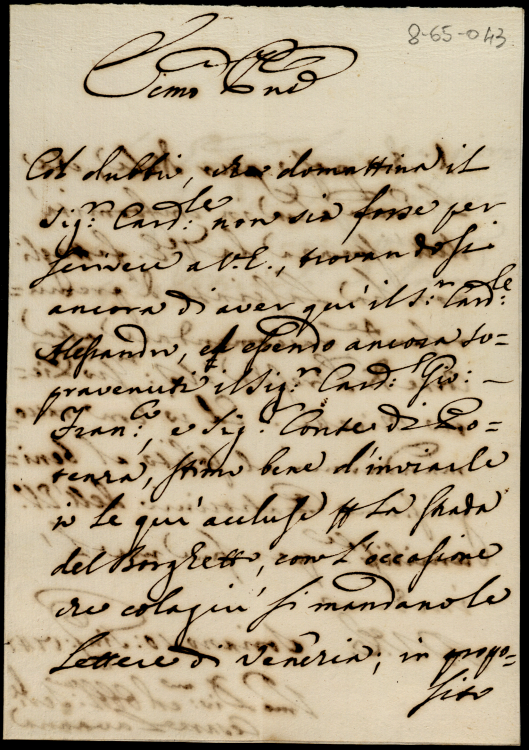 8-65-043
Col dubbio, che domattina il
Sig.r Card.le non sia forse per
scrivere a V.E., trovandosi
ancora di aver qui il S.r Card.le
Alessandro, et essendo ancora so=
pravenuti il Sig.r Card.l Gio: –
Fran.co, e Sig.r Conte di Po=
tenza, stimo bene d'inviarle
io le qui accluse la strada
del Borghetto, con l'occasione
che colagiù si mandano le
lettere di Venezia; in propo=
sito